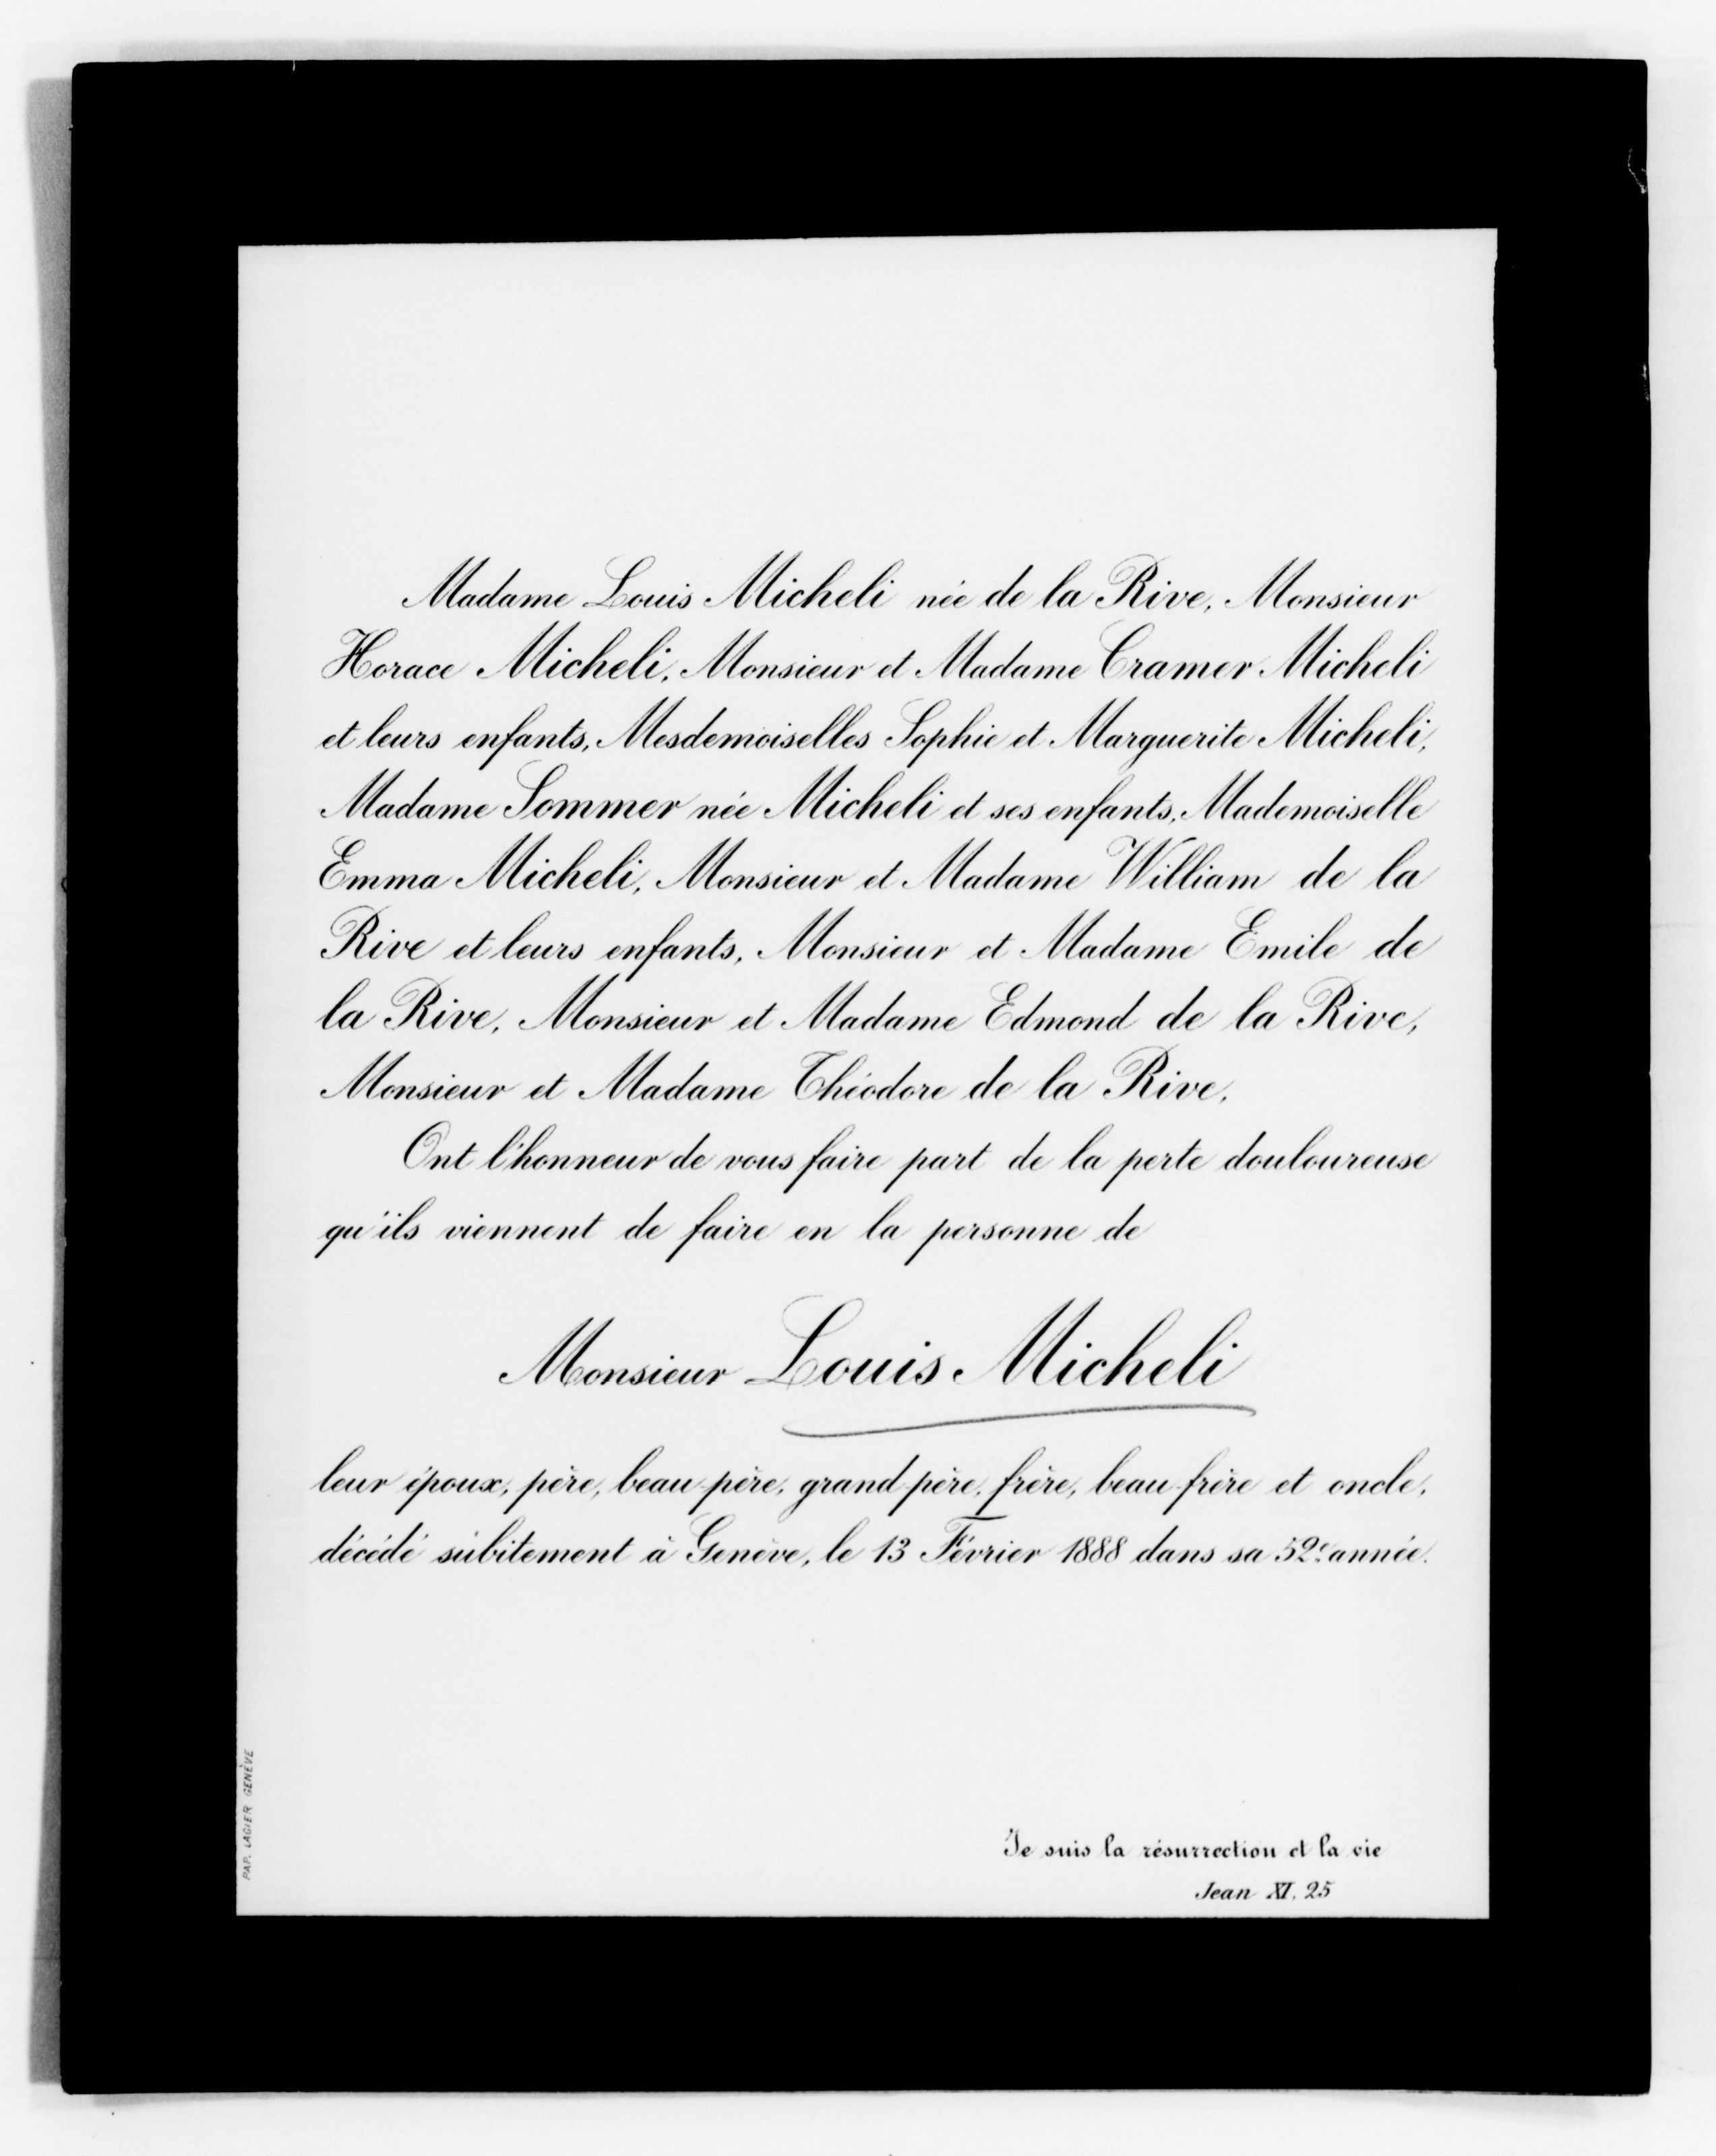 Madame Louis Micheli née de la Rive, Monsieur
Horace Micheli, Monsieur et Madame Cramer Micheli
et leurs enfants, Mesdemoiselles Sophie et Marguerite Micheli,
Madame Sommer née Micheli et ses enfants, Mademoiselle
Emma Micheli, Monsieur et Madame William de la
Rive et leurs enfants, Monsieur et Madame Emile de
la Rive, Monsieur et Madame Edmond de la Rive,
Monsieur et Madame Théodore de la Rive,
Ont l'honneur de vous faire part de la perte douloureuse
qu'ils viennent de faire en la personne de
Monsieur Louis Micheli
leur époux, père, beau-père, grand-père, frère, beau-frère et oncle,
décédé subitement à Genève, le 13 Février 1888 dans sa 52e année.
Je suis la résurrection et la vie
Jean XI. 25
PAP. LAGIER GENÈVE